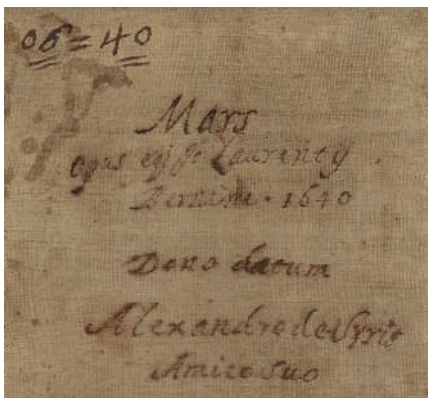 06=40
Mars
opus eq Jo Laurenty
Bernini. 1640
Dono datum
Alexandro de
Amico suo